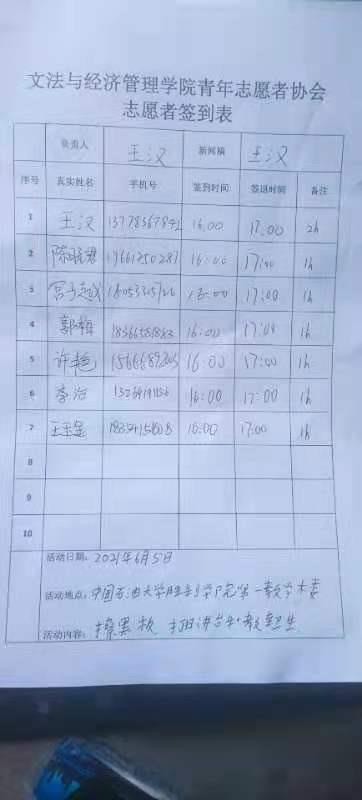 文法与经济管理学院青年志愿者协会
志愿者签到表
负责人 王汉 新闻稿 王汉
序号 真实姓名 手机号 签到时间 签退时间 备注
1 王汉 16:00 17:00 2h
2 16:00 17:00 1h
3 16:00 17:00 1h
4 郭梅 16:00 17:00 1h
5 许艳 16:00 17:00 1h
6 李治 16:00 17:00 1h
7 王玉金 16:00 17:00 1h
8
9
10
活动日期: 2021年6月5日
活动地点: 中国石油大学胜利学院第一教学楼
活动内容: 擦黑板 打扫讲台和教室卫生